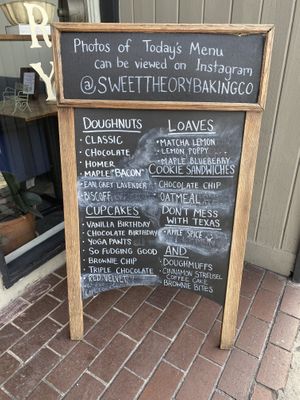 Photos of Today's Menu
can be viewed on Instagram
@SWEETTHEORYBAKINGCO
DOUGHNUTS
• CLASSIC
• CHOCOLATE
• HOMER
• MAPLE "BACON"
• EARL GREY LAVENDER
• BISCOFF
CUPCAKES
• VANILLA BIRTHDAY
• CHOCOLATE BIRTHDAY
• YOGA PANTS
• SO FUDGING GOOD
• BROWNIE CHIP
• TRIPLE CHOCOLATE
• RED VELVET
LOAVES
• MATCHA LEMON
• LEMON POPPY
• MAPLE BLUEBERRY
COOKIE SANDWICHES
• CHOCOLATE CHIP
• OATMEAL
DON'T MESS
WITH TEXAS
• APPLE SPICE
AND
• DOUGHMUFFS
• CINNAMON STREUSEL
COFFEE CAKE
• BROWNIE BITES
R
Y